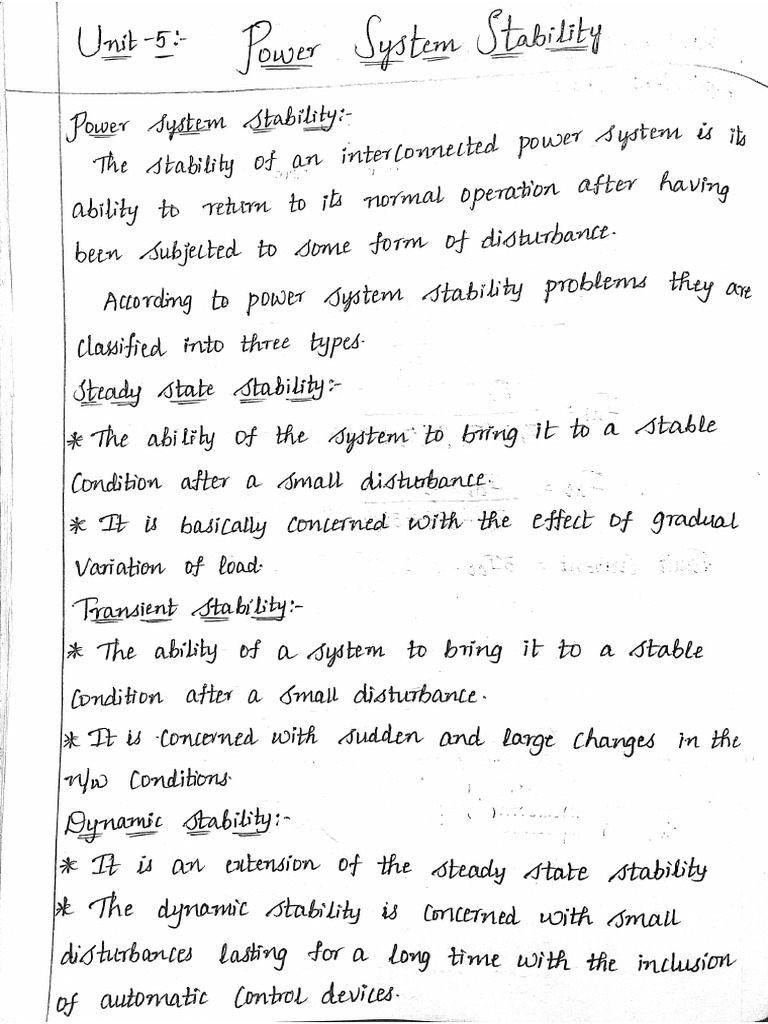 Unit-5:- Power System Stability
Power system stability:-
The stability of an interconnected power system is its
ability to return to its normal operation after having
been subjected to some form of disturbance.
According to power system stability problems they are
classified into three types.
Steady state stability:-
* The ability of the system to bring it to a stable
Condition after a small disturbance.
* It is basically concerned with the effect of gradual
Variation of load.
Transient stability:-
* The ability of a system to bring it to a stable
Condition after a small disturbance.
* It is concerned with sudden and large changes in the
n/w Conditions.
Dynamic stability:-
* It is an extension of the steady state stability
* The dynamic stability is concerned with small
disturbances lasting for a long time with the inclusion
of automatic Control devices.